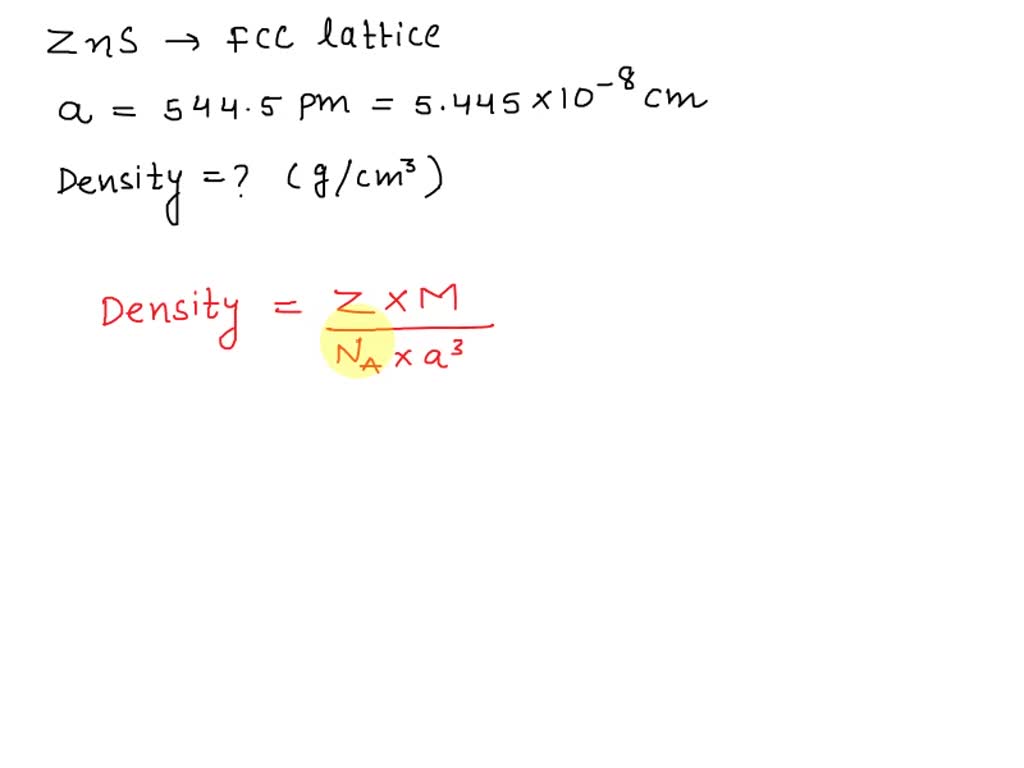 ZnS → FCC lattice
a = 544.5 pm = 5.445 × 10⁻⁸ cm
Density = ? (g/cm³)
Density = Z × M
N_A × a³